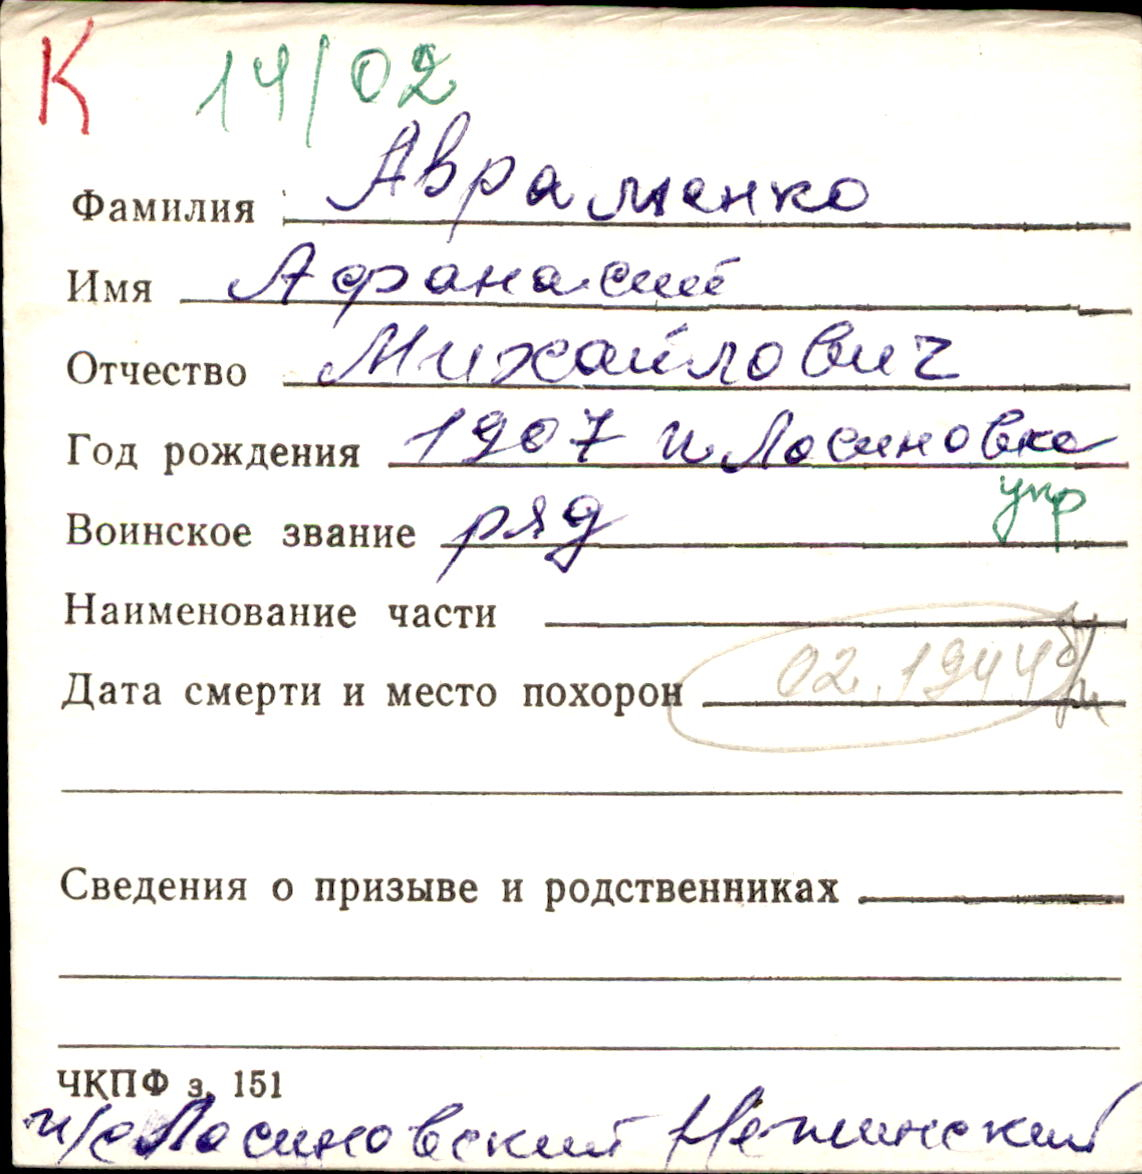 К 14/02
Фамилия Авраменко
Имя Афанасий
Отчество Михайлович
Год рождения 1907 п Лосиновка
укр
Воинское звание ряд
Наименование части
Дата смерти и место похорон 02.1944 б/п
Сведения о призыве и родственниках
ЧКПФ з. 151
п/с Лосиновский Нежинский